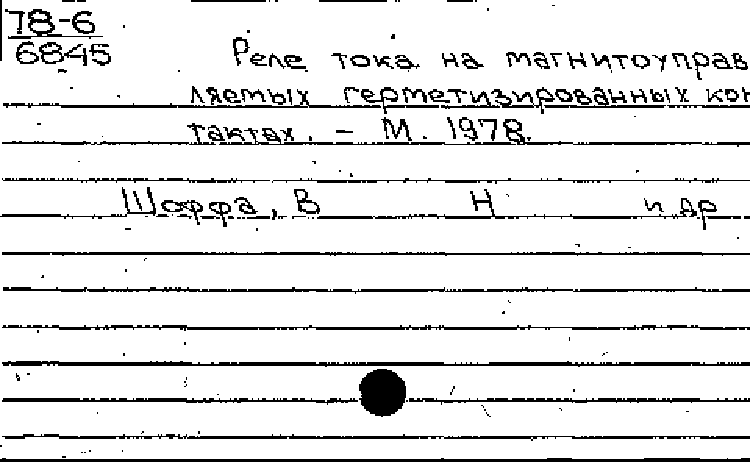 78-6
6845
Реле тока на магнитоуправ
ляемых герметизированных кон
тактах. – М. 1978.
Шоффа, В Н и др